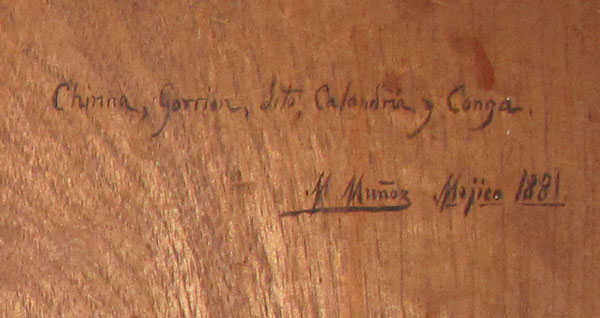 Chinna, Gorrion, dito, Calandria y Conga.
M. Muñoz Mejico 1881.